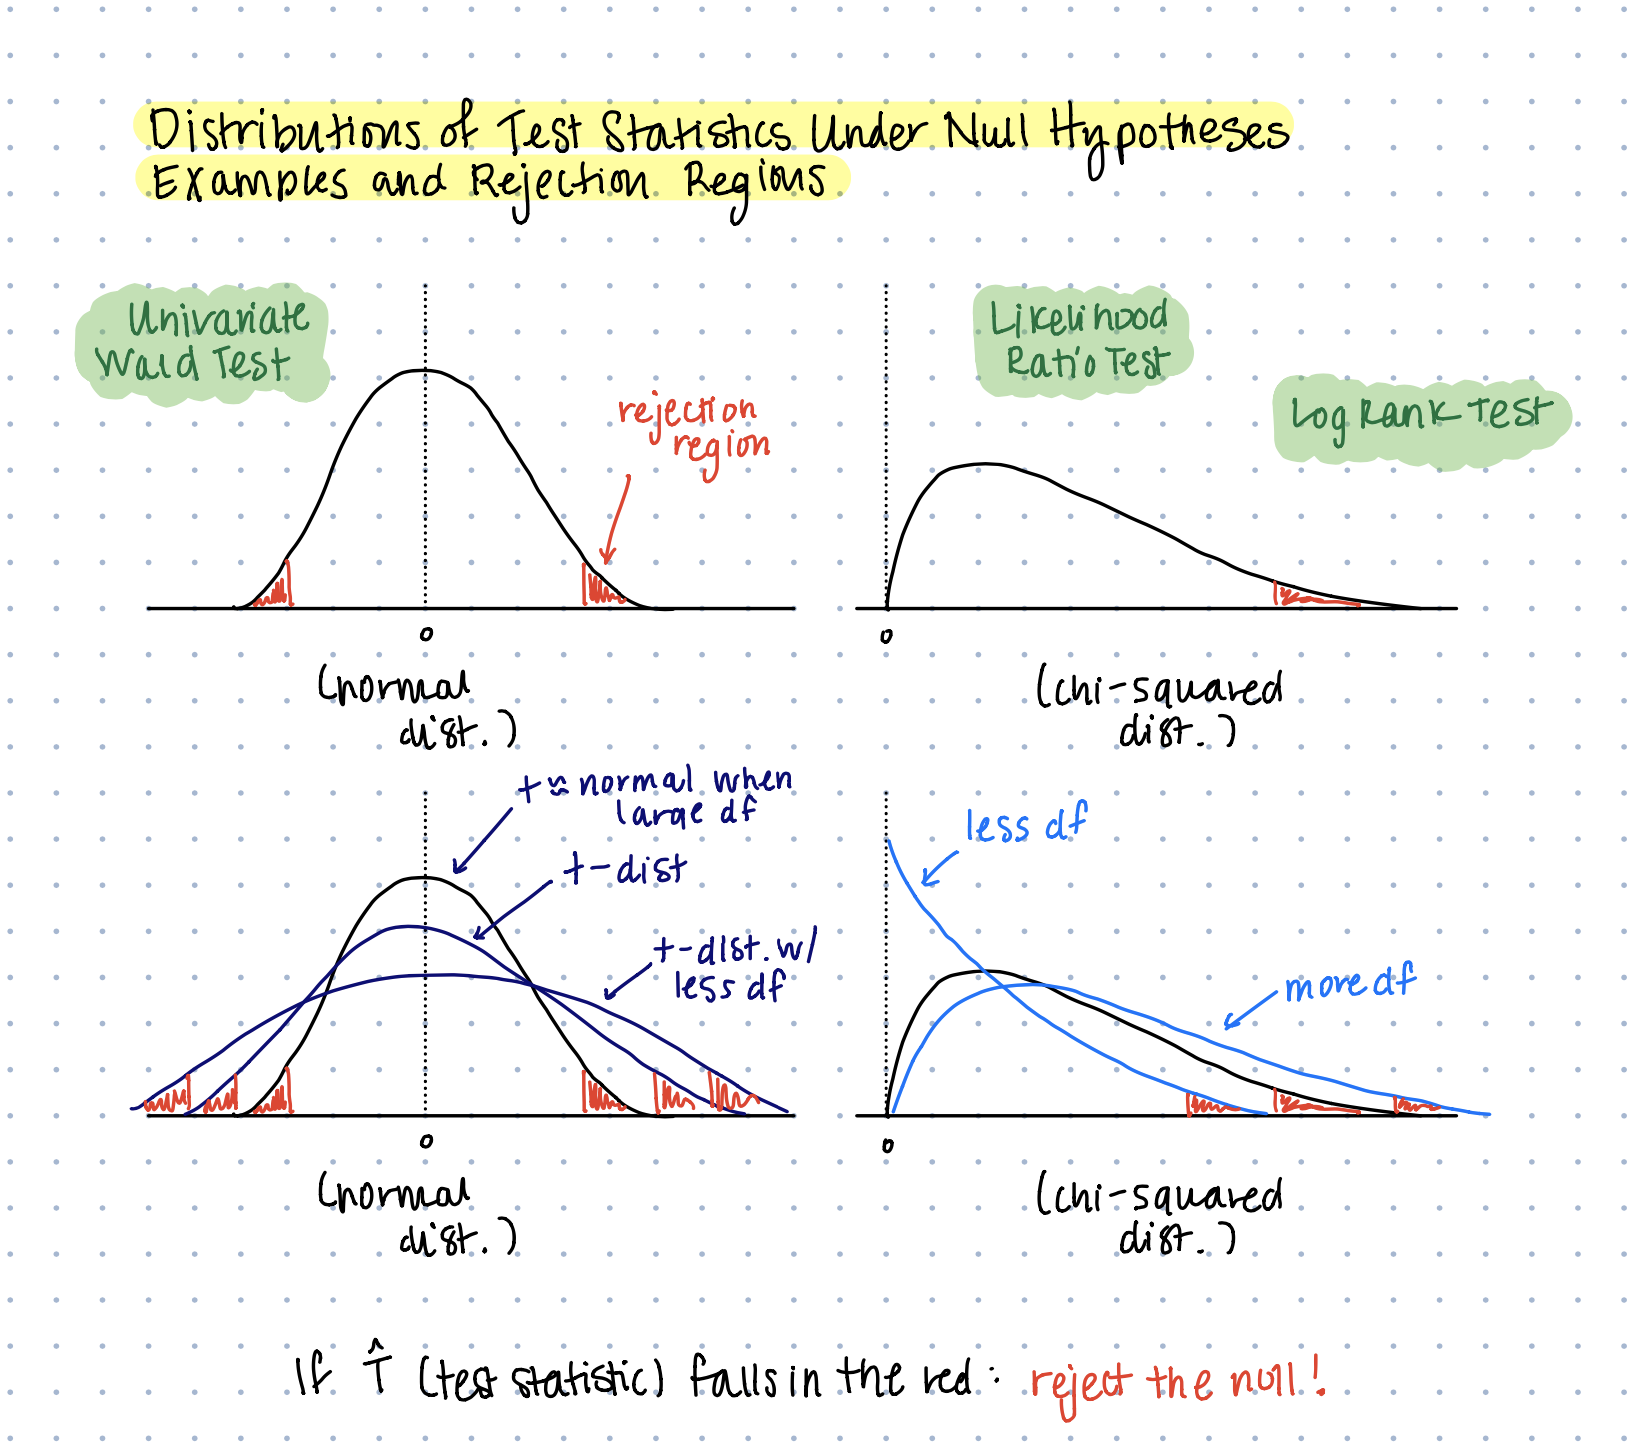 Distributions of Test Statistics Under Null Hypotheses
Examples and Rejection Regions
Univariate
Wald Test
rejection
region
0
(normal
dist.)
Likelihood
Ratio Test
Log Rank Test
0
(chi-squared
dist.)
t ≈ normal when
large df
t-dist
t-dist. w/
less df
0
(normal
dist.)
less df
more df
0
(chi-squared
dist.)
If T̂ (test statistic) falls in the red: reject the null!